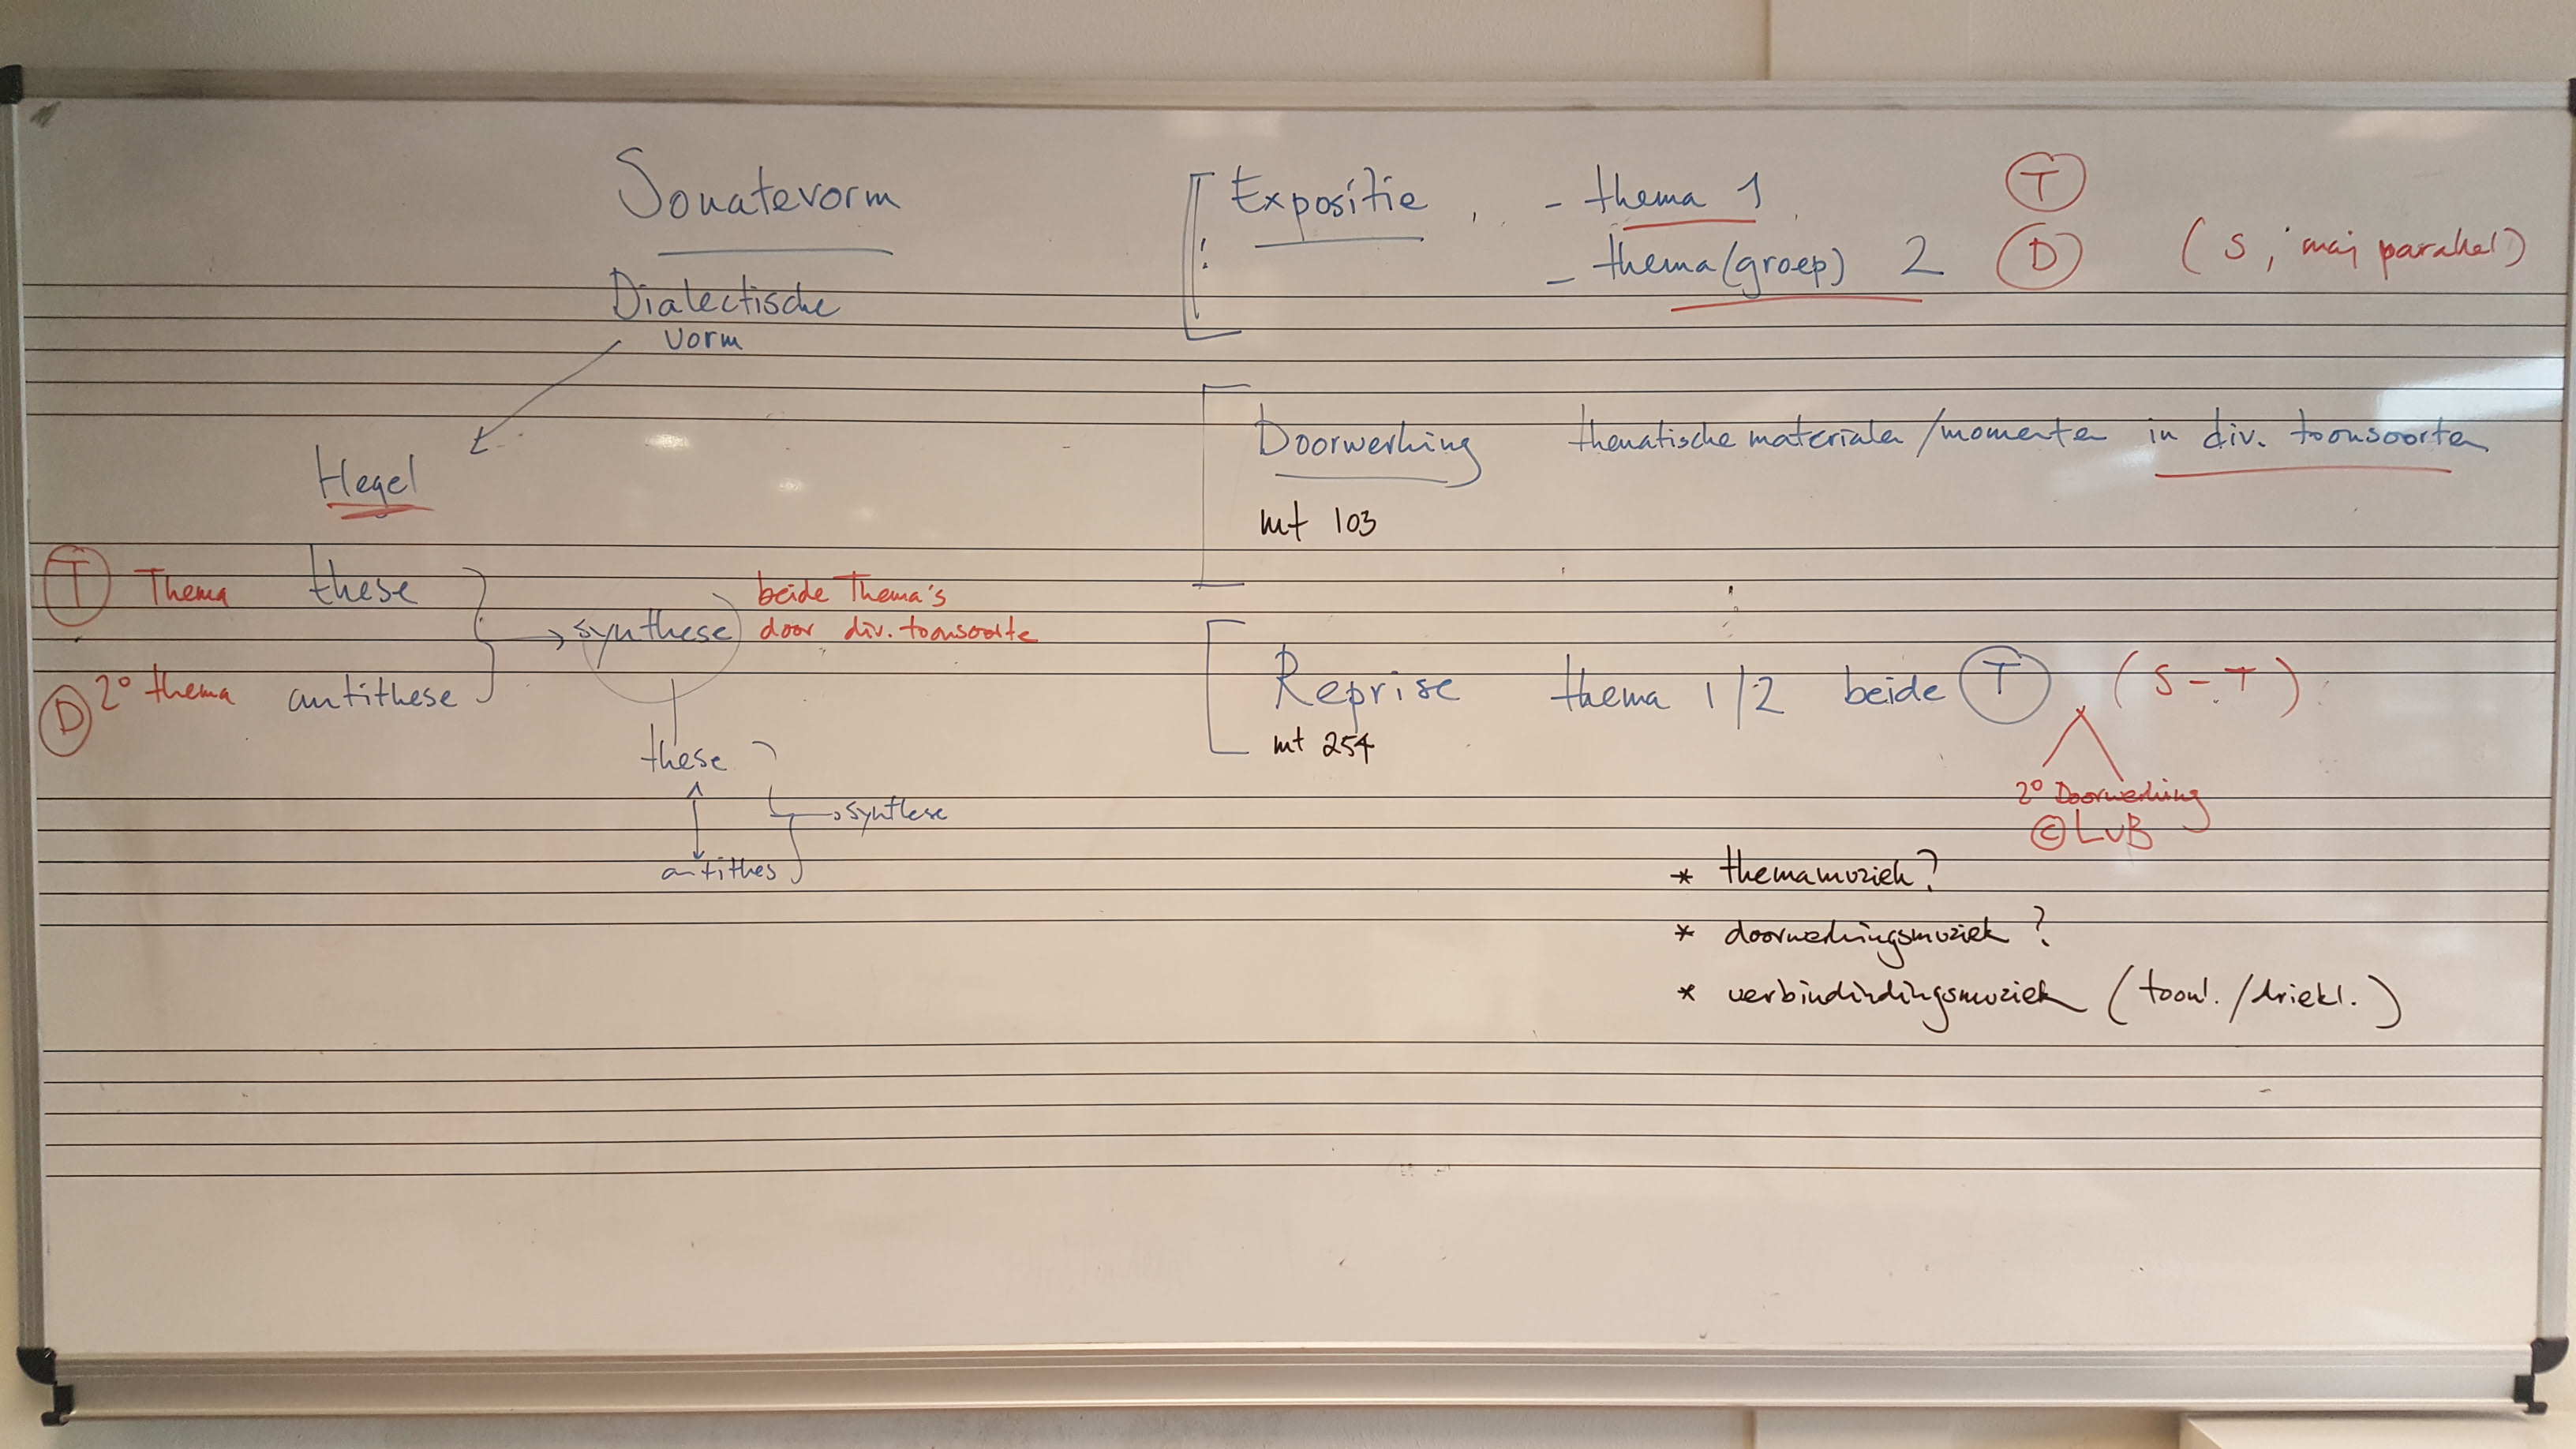 Sonatevorm
Dialectische
vorm
Hegel
T Thema these
D 2° thema antithese
synthese
beide Thema's
door div. toonsoorte
these
antithes
synthese
Expositie - thema 1 T
- thema(groep) 2 D (S, maj parallel)
Doorwerking thematische materialen/momenten in div. toonsoorten
mt 103
Reprise thema 1/2 beide T (S - T)
mt 254
2° Doorwerking
© LvB
* themamuziek?
* doorwerkingsmuziek?
* verbindindingsmuziek (toonl./driekl.)